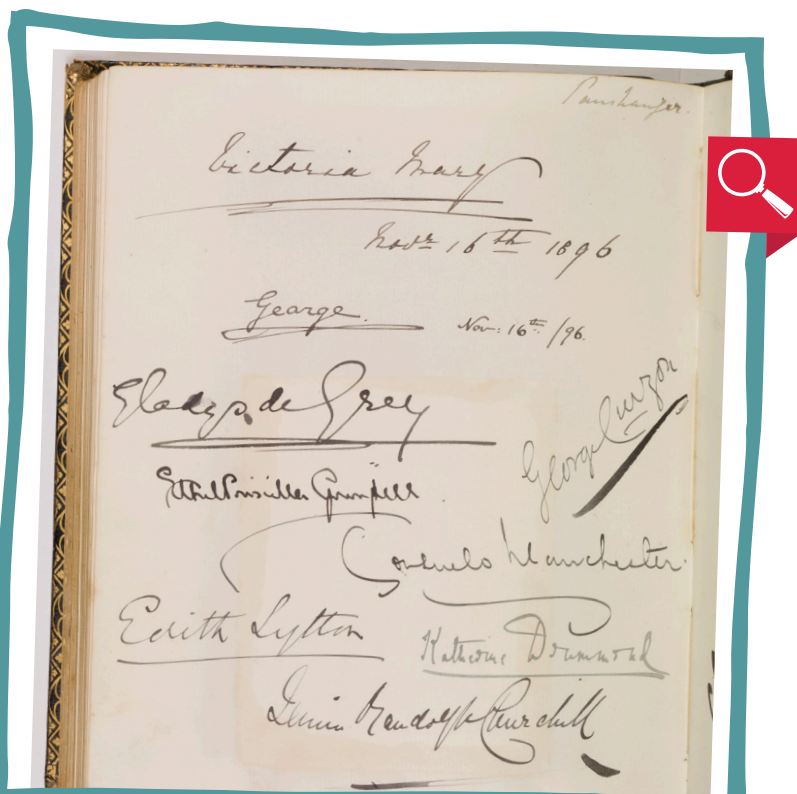 Panshanger.
Victoria Mary
Novr 16th 1896
George.
Nov: 16th /96.
Gladys de Grey
George Curzon
Ethel Priscilla Grenfell
Consuelo Manchester.
Edith Lytton
Katherine Drummond
Jennie Randolph Churchill